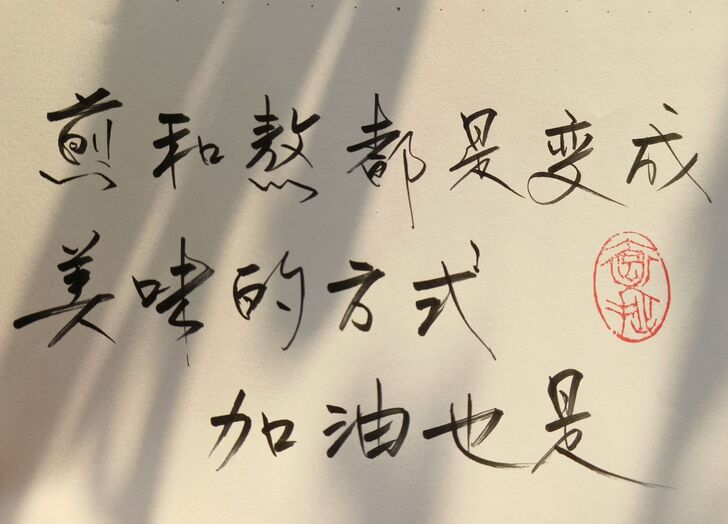 煎和熬都是变成
美味的方式
加油也是